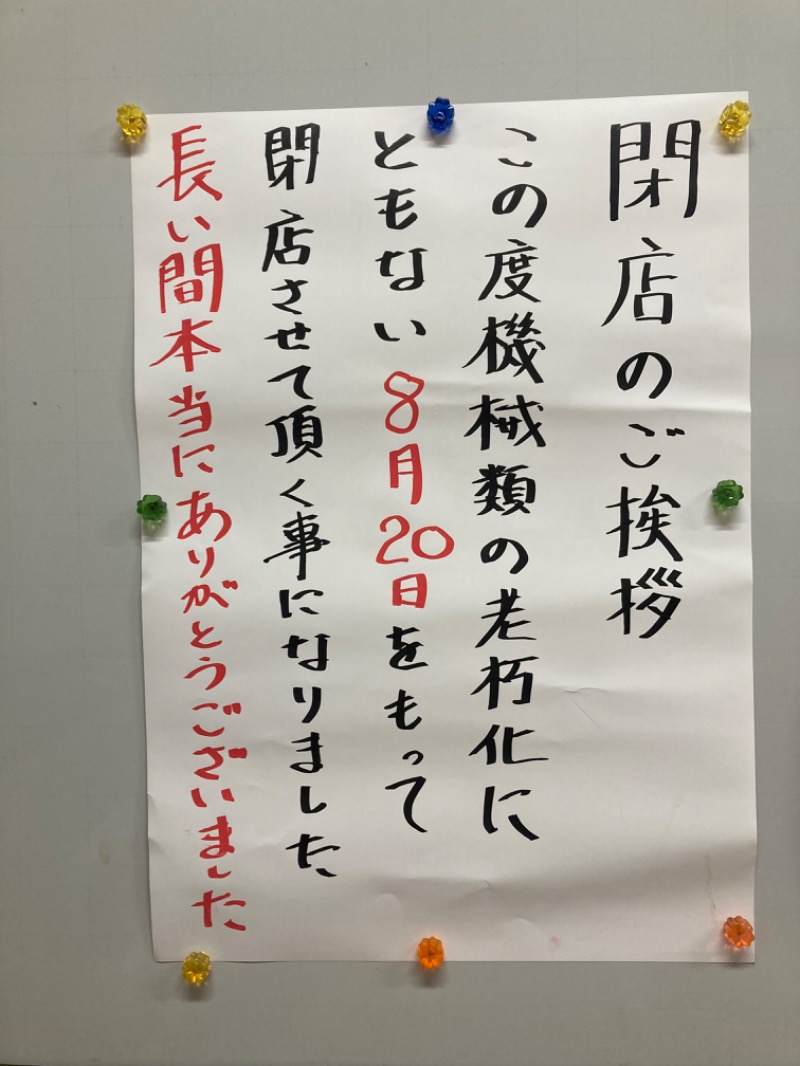 閉店のご挨拶
この度機械類の老朽化に
ともない8月20日をもって
閉店させて頂く事になりました
長い間本当にありがとうございました